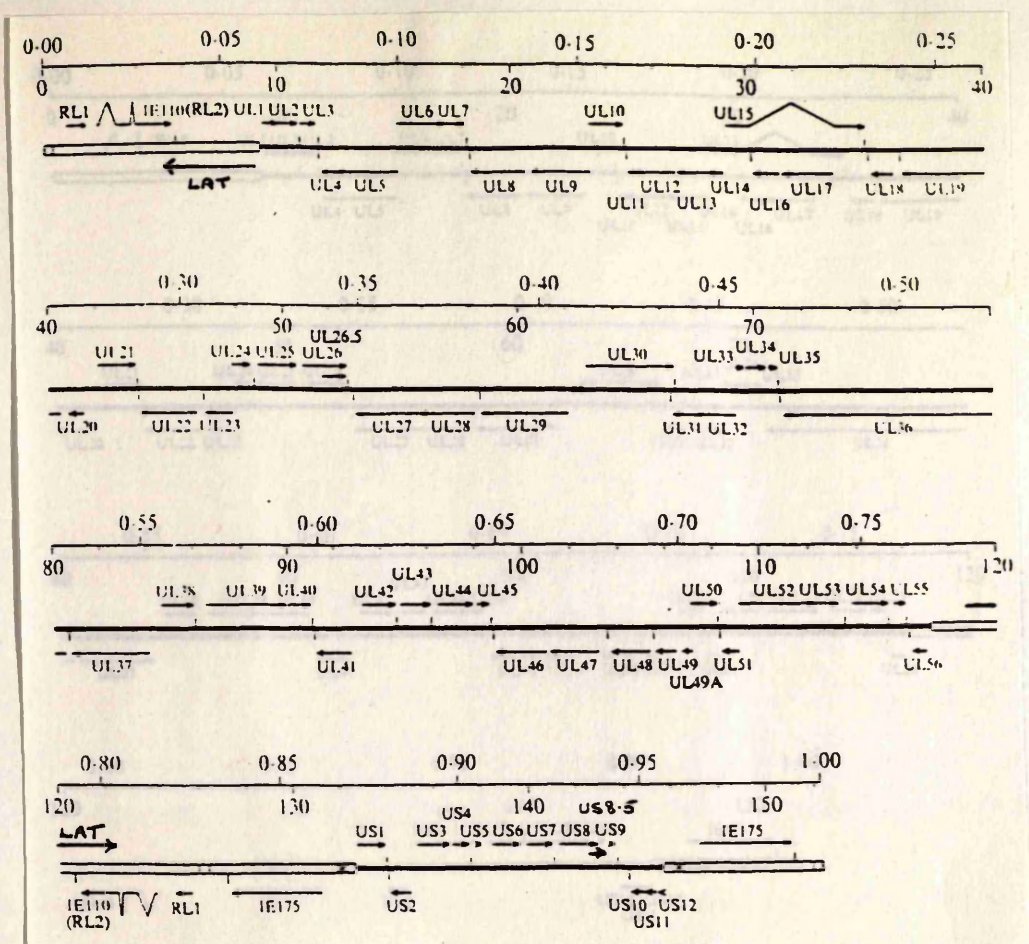 0·00 0·05 0·10 0·15 0·20 0·25
0 10 20 30 40
RL1 IE110(RL2) UL1 UL2 UL3 UL6 UL7 UL10 UL15
LAT UL4 UL5 UL8 UL9 UL12 UL14 UL17 UL18 UL19
UL11 UL13 UL16
0·30 0·35 0·40 0·45 0·50
40 50 60 70
UL26.5
UL21 UL24 UL25 UL26 UL30 UL33 UL34 UL35
UL20 UL22 UL23 UL27 UL28 UL29 UL31 UL32 UL36
0·55 0·60 0·65 0·70 0·75
80 90 100 110 120
UL43
UL38 UL39 UL40 UL42 UL44 UL45 UL50 UL52 UL53 UL54 UL55
UL37 UL41 UL46 UL47 UL48 UL49 UL51 UL56
UL49A
0·80 0·85 0·90 0·95 1·00
120 130 140 150
US4 US8·5
LAT US1 US3 US5 US6 US7 US8 US9 IE175
IE110 RL1 IE175 US2 US10 US12
(RL2) US11